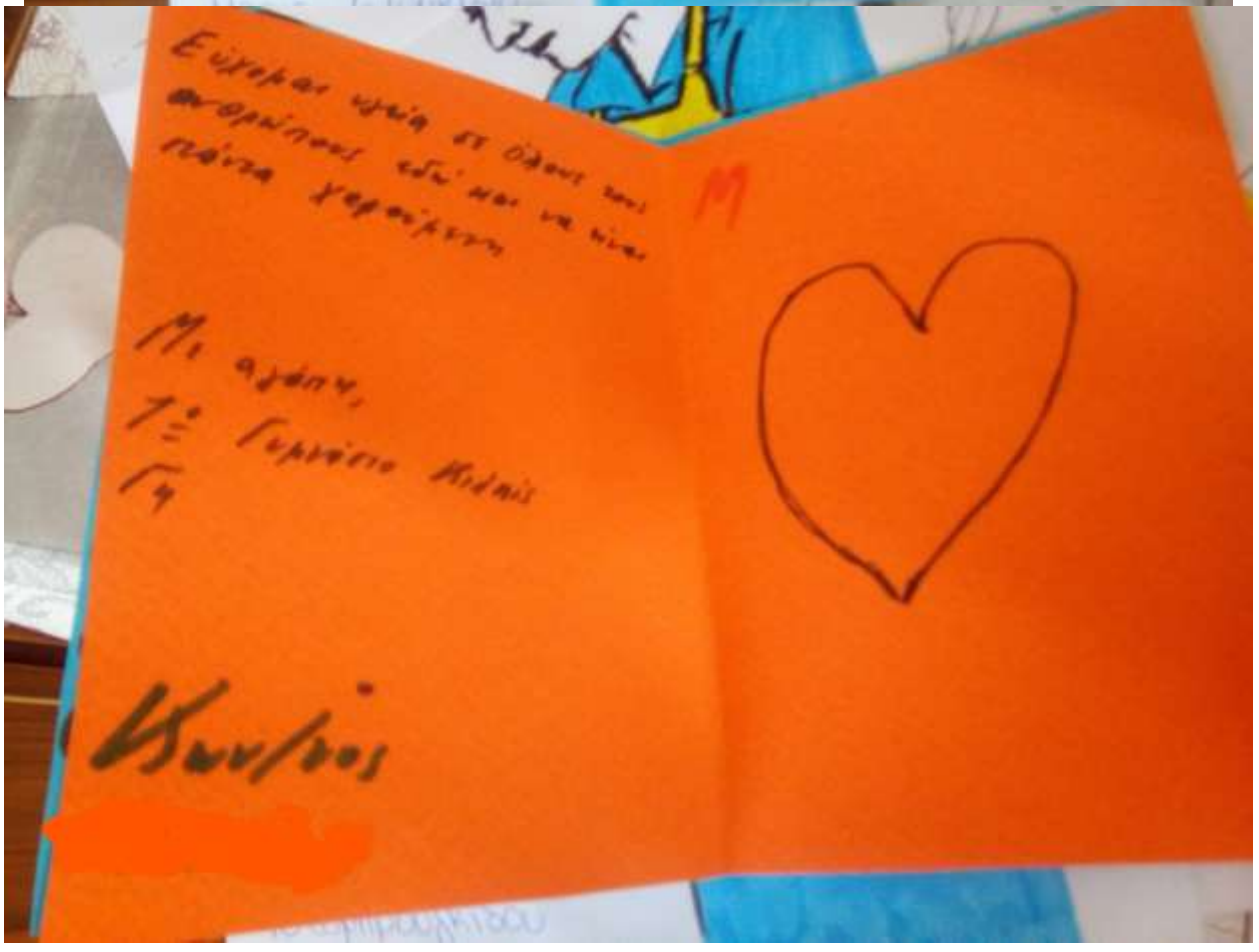 Εύχομαι υγεία σε όλους τους
ανθρώπους εδώ και να είναι
πάντα χαρούμενη
Μ
Με αγάπη,
1ο Γυμνάσιο Κιλκίς
Γ4
Κων/νος